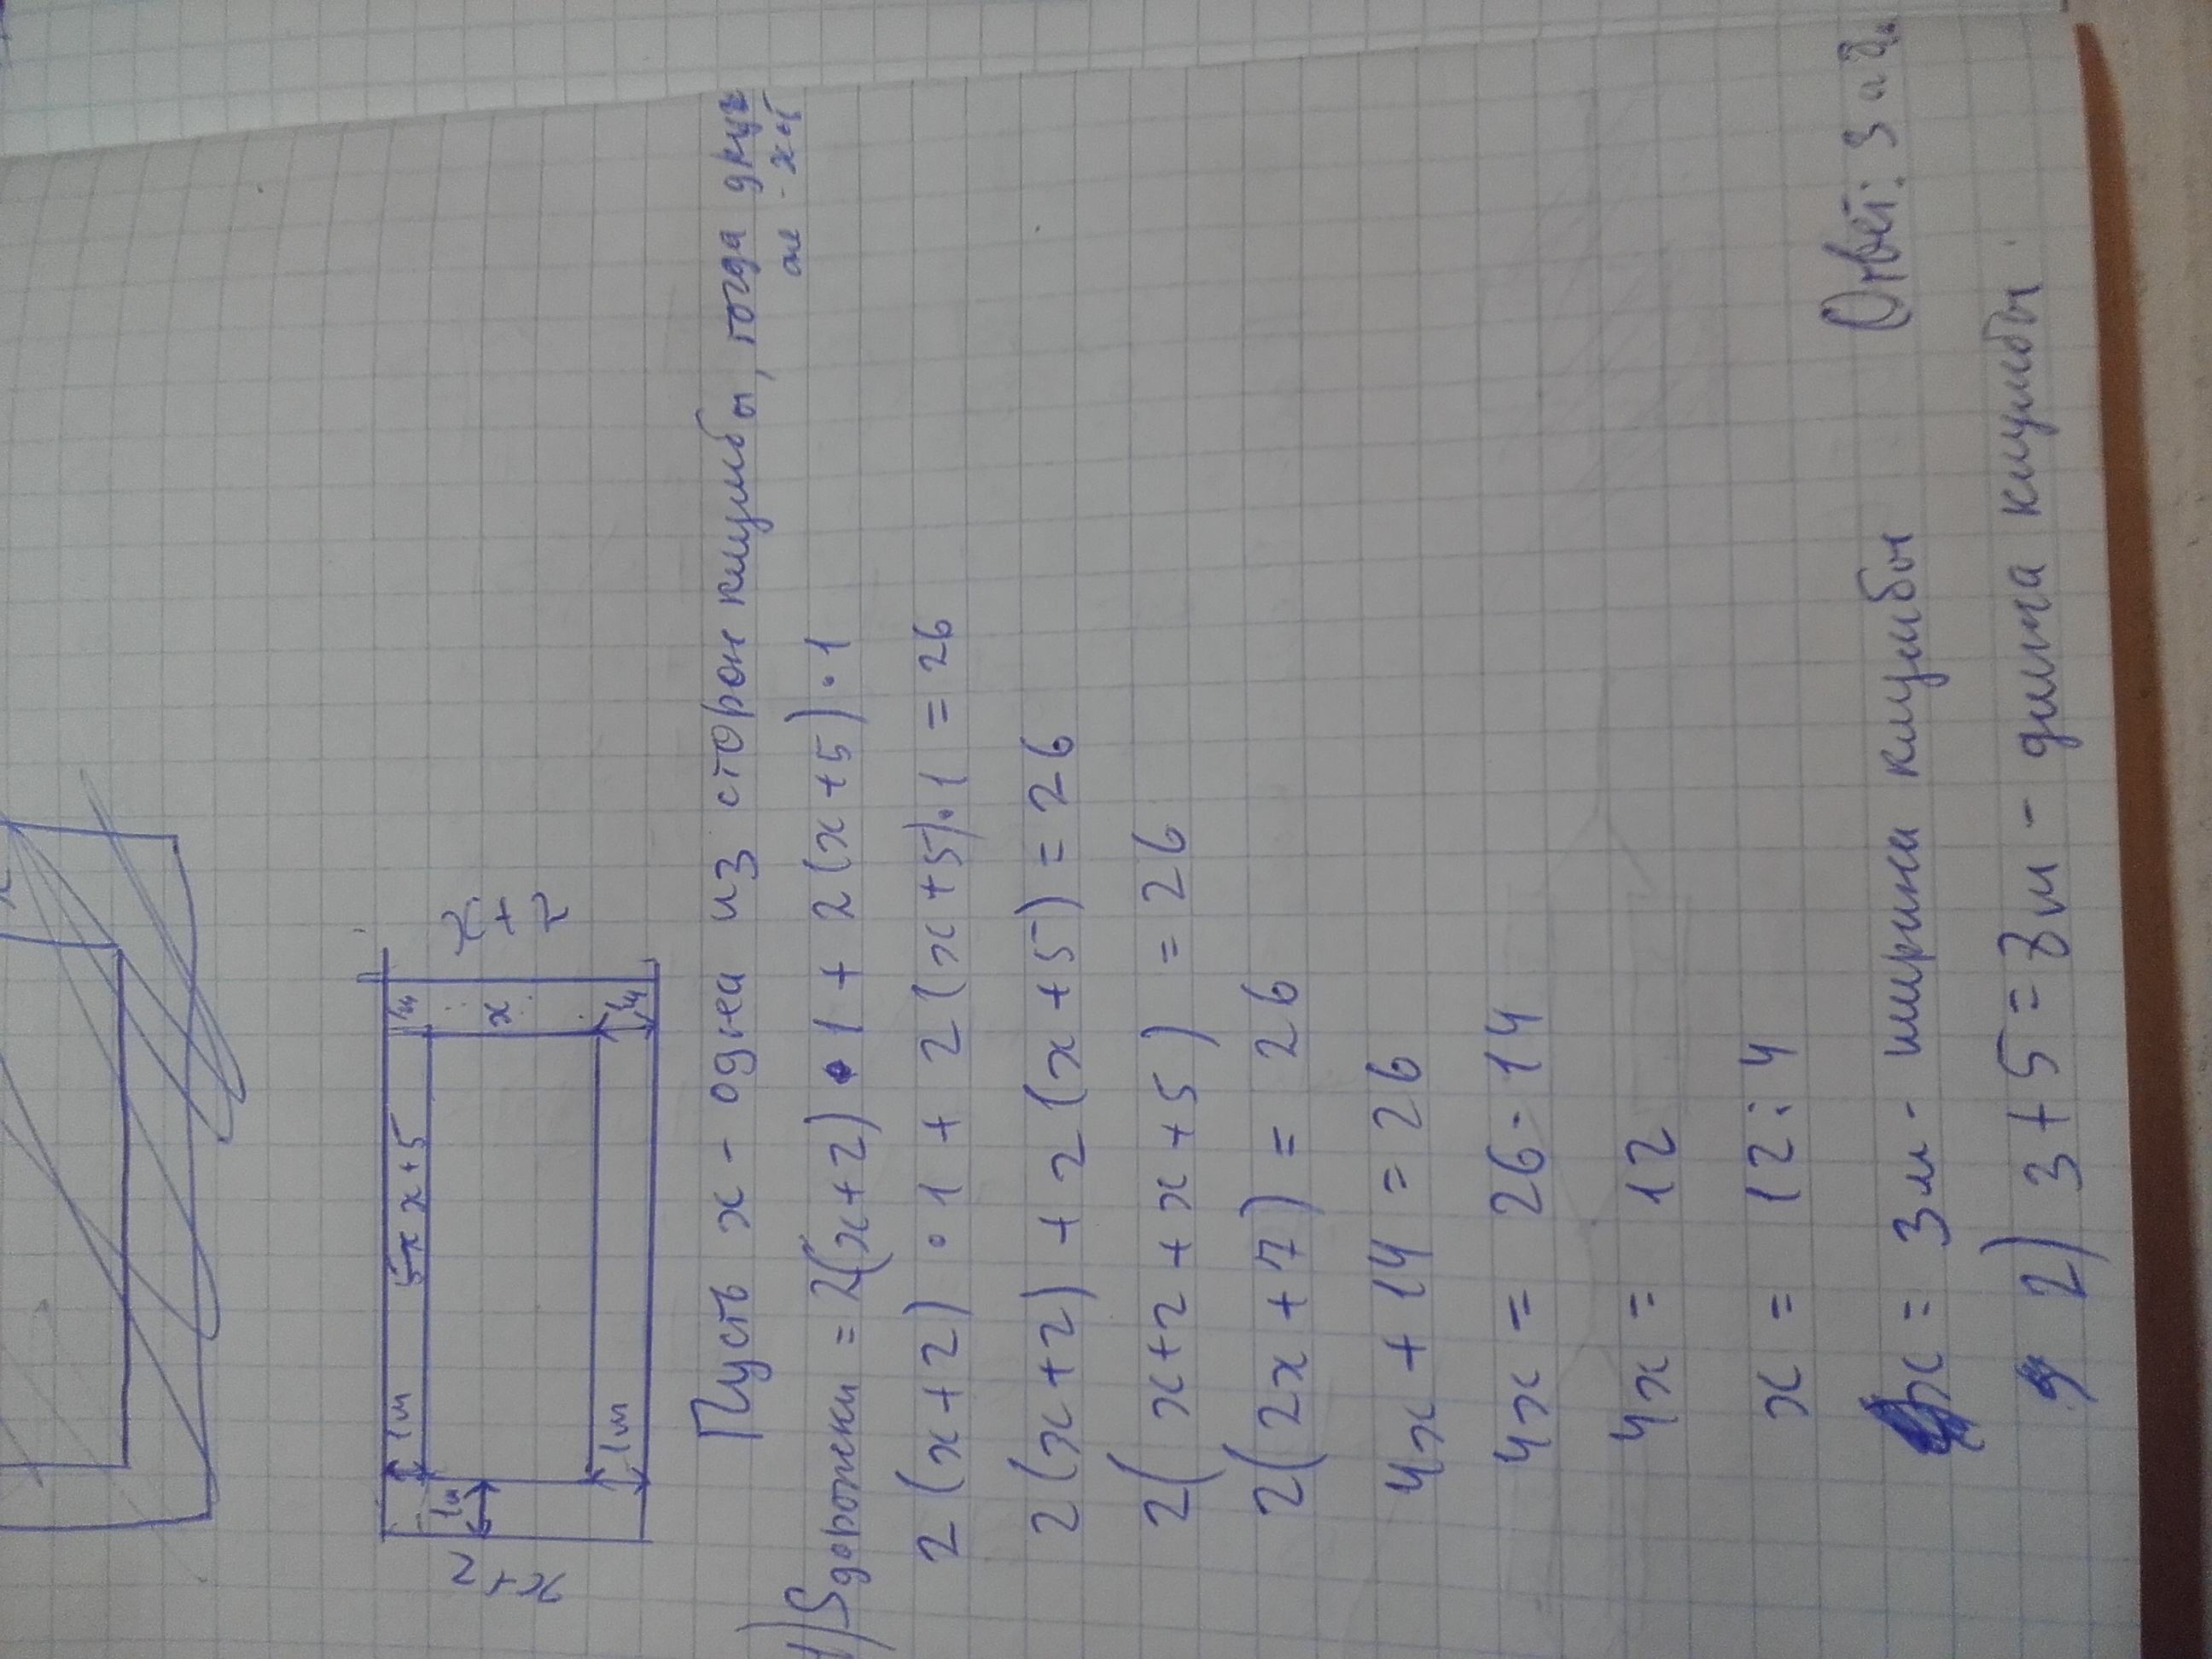 1м
1м
5 x+5
1м
x
x+2
2+x
1м
1м
1м
Пусть x - одна из сторон клумбы, тогда
- x+5
1) Sдорожки = 2(x+2) · 1 + 2(x+5) · 1
2(x+2) · 1 + 2(x+5) · 1 = 26
2(x+2) + 2(x+5) = 26
2(x+2+x+5) = 26
2(2x+7) = 26
4x + 14 = 26
4x = 26-14
4x = 12
x = 12:4
x = 3м - ширина клумбы
2) 3+5=8м - длина клумбы.
Ответ: 3 и 8м